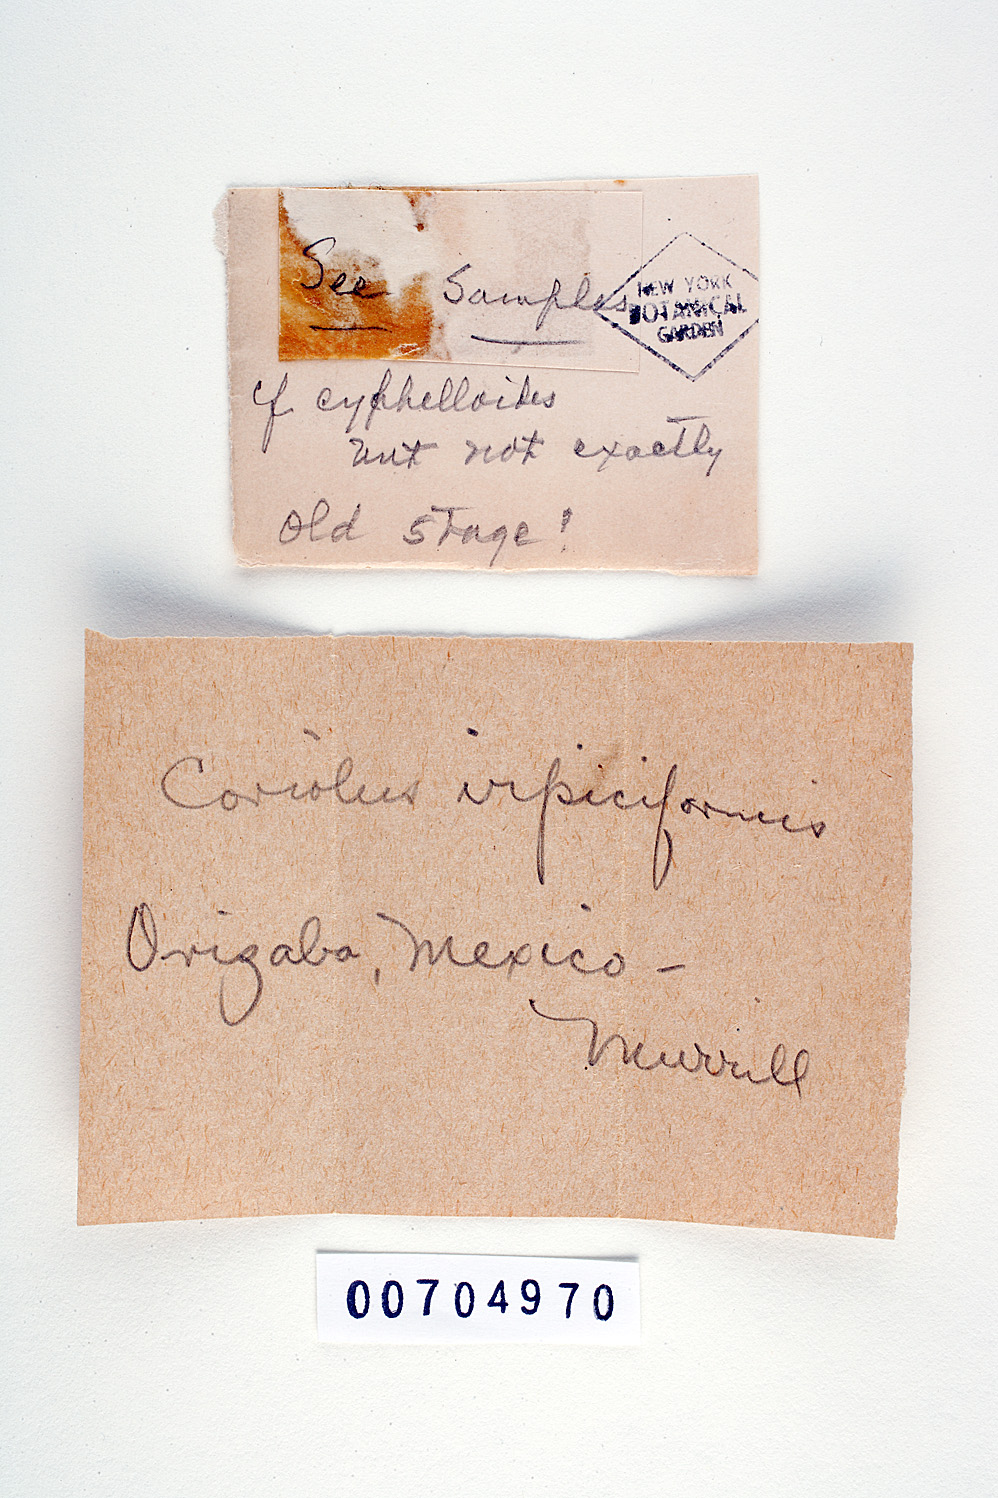 See Samples
NEW YORK
BOTANICAL
GARDEN
cf cyphelloides
but not exactly
old stage!
Coriolus irpiciformis
Orizaba, Mexico -
Murrill
00704970